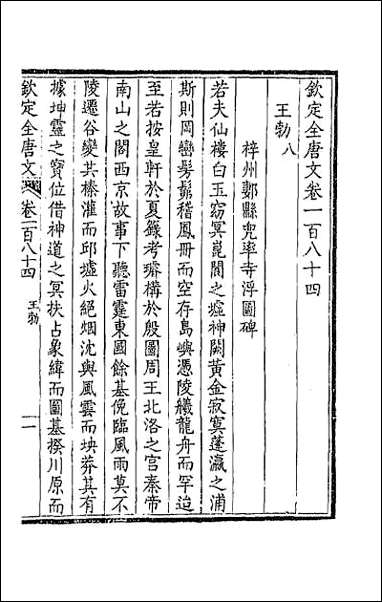 欽定全唐文卷一百八十四
王勃八
梓州郪縣兜率寺浮圖碑
若夫仙樓白玉窈冥崑閬之墟神闕黃金寂寞蓬瀛之浦
斯則岡巒髣髴稽鳳冊而空存島嶼憑陵艤龍舟而罕迨
至若按皇軒於夏籙考璿構於殷圖周王北洛之宮秦帝
南山之閣西京故事下聽雷霆東國餘基俛臨風雨莫不
陵遷谷變共榛灌而邱墟火絕烟沈與風雲而坱莽其有
據坤靈之寶位借神道之冥扶占象緯而圖基揆川原而
欽定全唐文 卷一百八十四 王勃 一